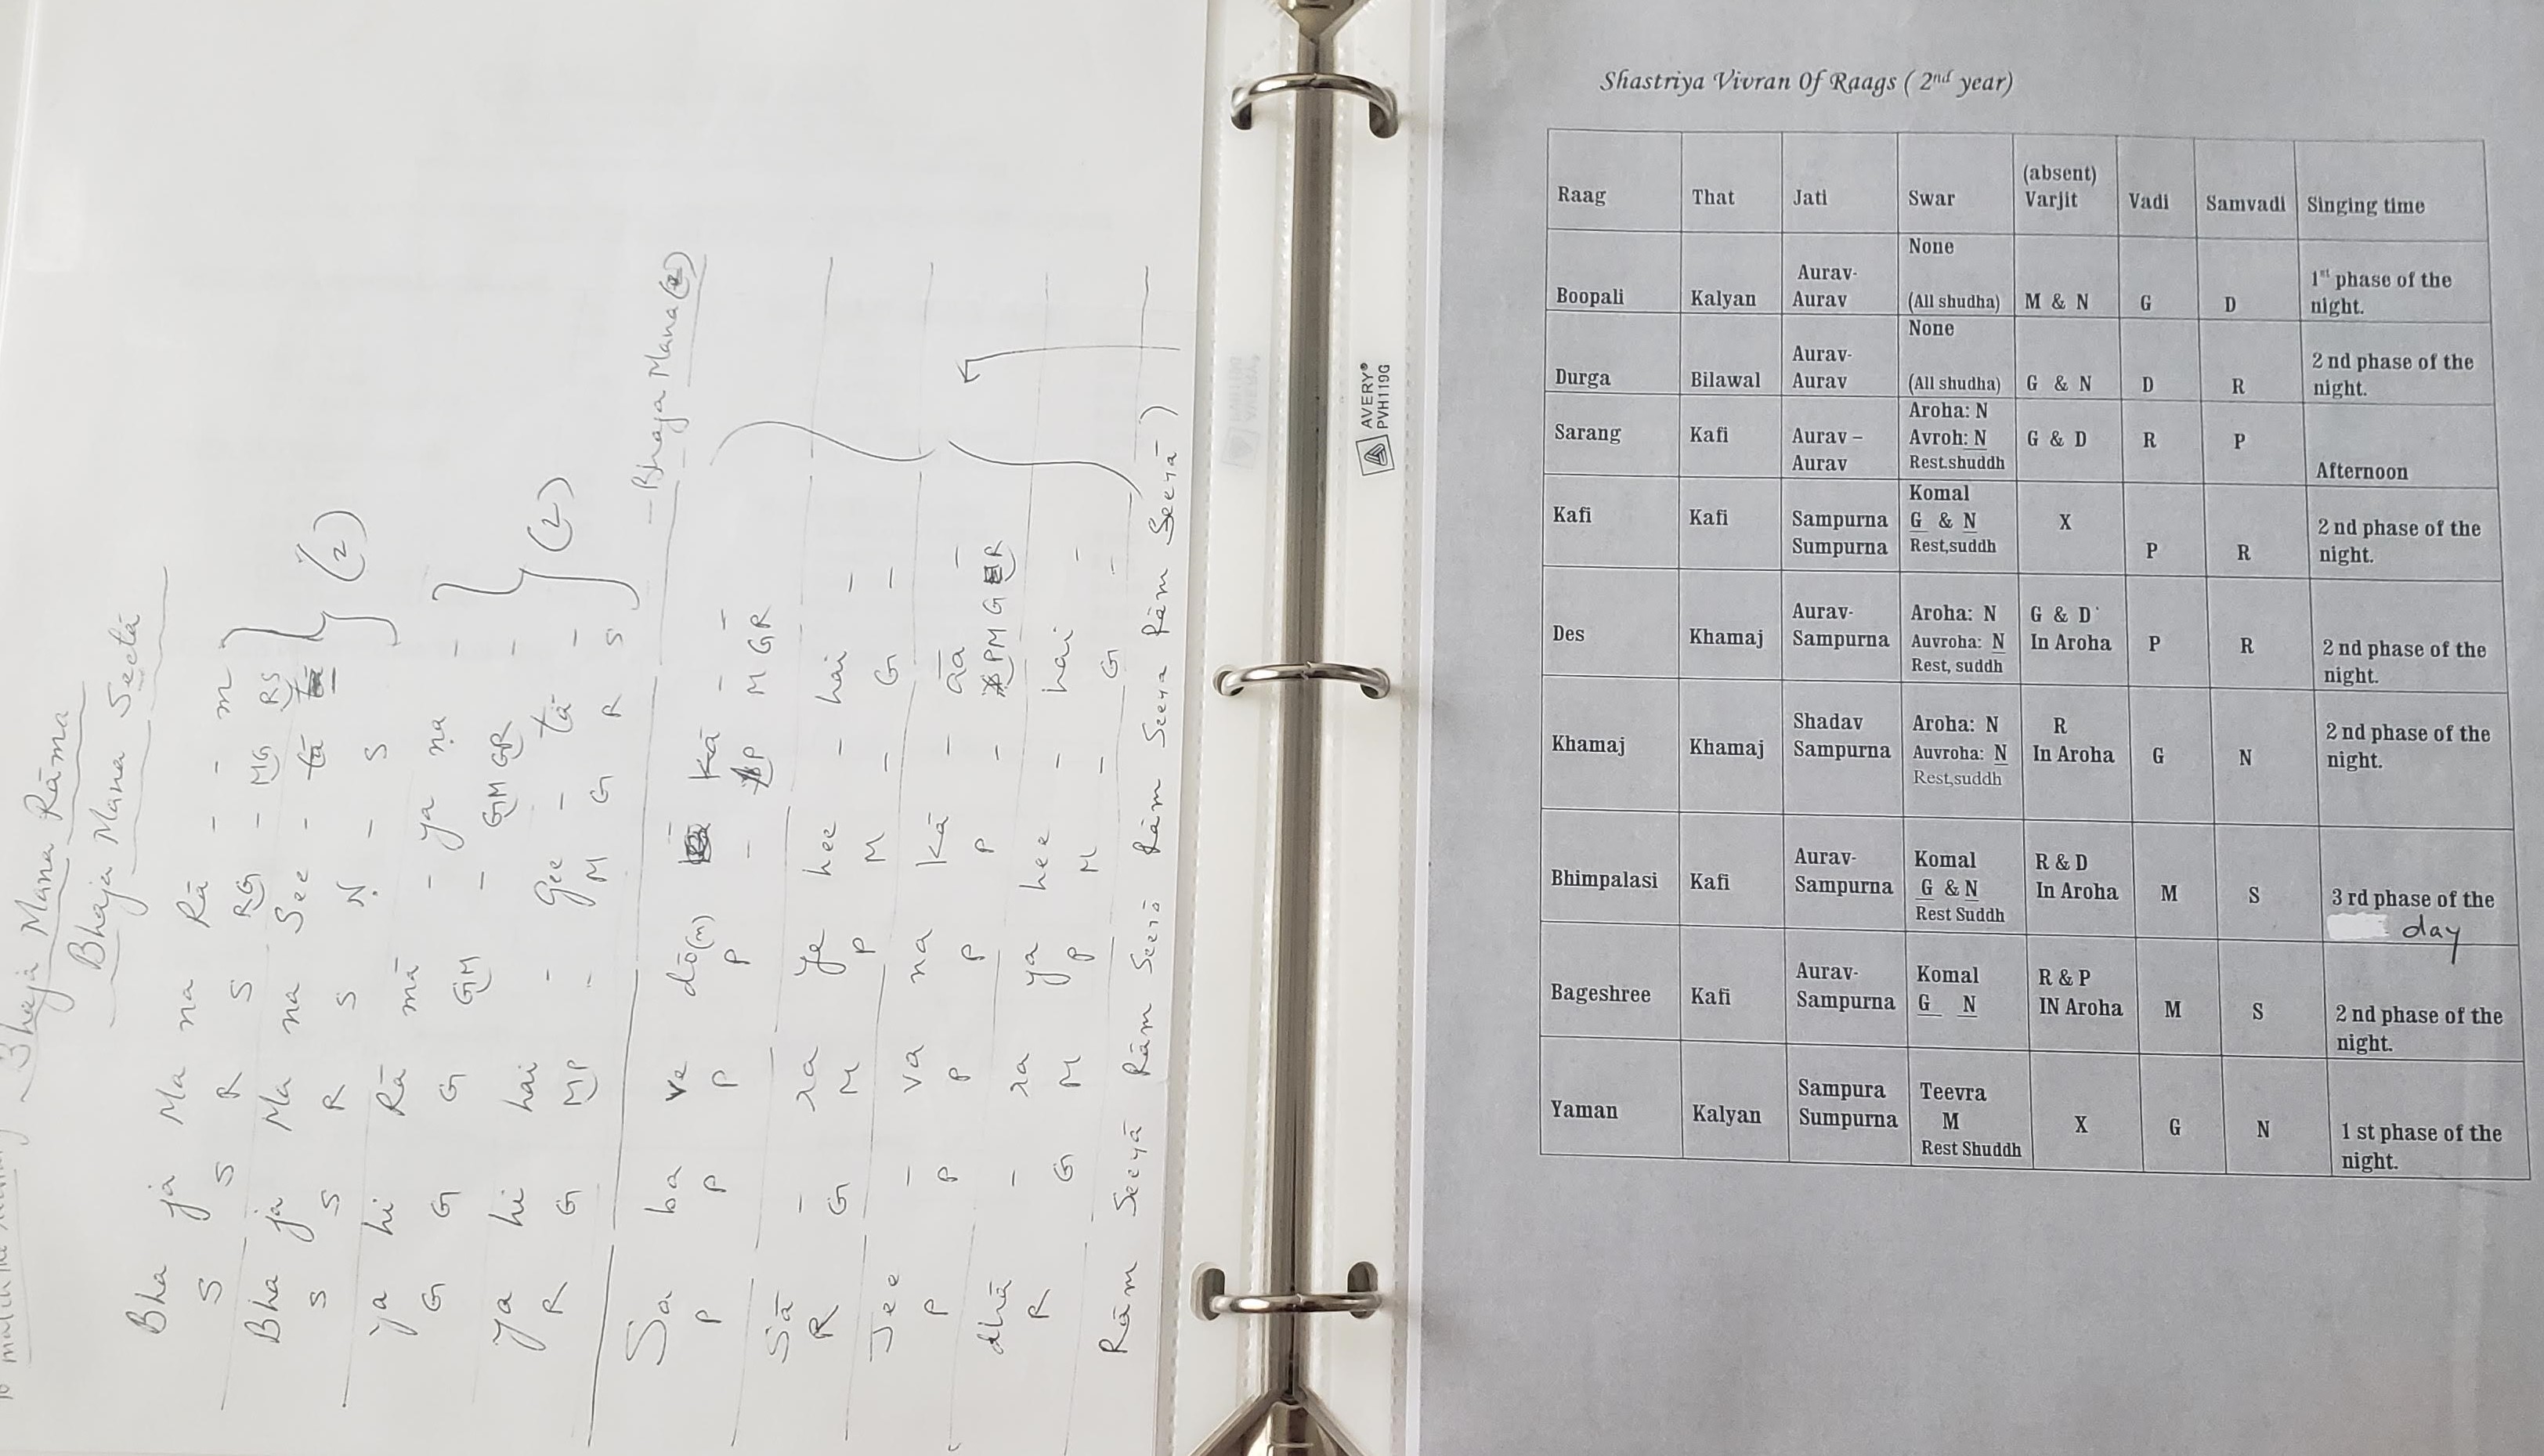 Bhaja Mana Rāma
Bhaja Mana Seetā
Bha ja Ma na Rā - - m
S S R S RG - MG RS
Bha ja Ma na See - tā
S S R S Ṇ - S
ya hi Rā mā - ya ṇa -
G G G GM - GM GR -
ya hi hai - Gee - tā -
R G MP - M G R S
(2)
(2)
Bhaja Mana (2)
Sa ba ve dō(n) kā - -
P P P P - P M GR
Sā - ra ye hee - hai -
R G M P M - G -
Jee - va na kā - āa -
P P P P P - PM G R
dhā - ra ya hee - hai -
R G M P M - G -
Rām Seeyā Rām Seeyā Rām Seeya Rām Seeyā )
AVERY®
PVH119G
Shastriya Vivran Of Raags ( 2nd year)
Raag That Jati Swar (absent) Varjit Vadi Samvadi Singing time
Boopali Kalyan Aurav- Aurav None (All shudha) M & N G D 1st phase of the night.
Durga Bilawal Aurav- Aurav None (All shudha) G & N D R 2 nd phase of the night.
Sarang Kafi Aurav – Aurav Aroha: N Avroh: N Rest.shuddh G & D R P Afternoon
Kafi Kafi Sampurna Sumpurna Komal G & N Rest,suddh X P R 2 nd phase of the night.
Des Khamaj Aurav- Sampurna Aroha: N Auvroha: N Rest, suddh G & D In Aroha P R 2 nd phase of the night.
Khamaj Khamaj Shadav Sampurna Aroha: N Auvroha: N Rest,suddh R In Aroha G N 2 nd phase of the night.
Bhimpalasi Kafi Aurav- Sampurna Komal G & N Rest Suddh R & D In Aroha M S 3 rd phase of the day
Bageshree Kafi Aurav- Sampurna Komal G N R & P IN Aroha M S 2 nd phase of the night.
Yaman Kalyan Sampura Sumpurna Teevra M Rest Shuddh X G N 1 st phase of the night.